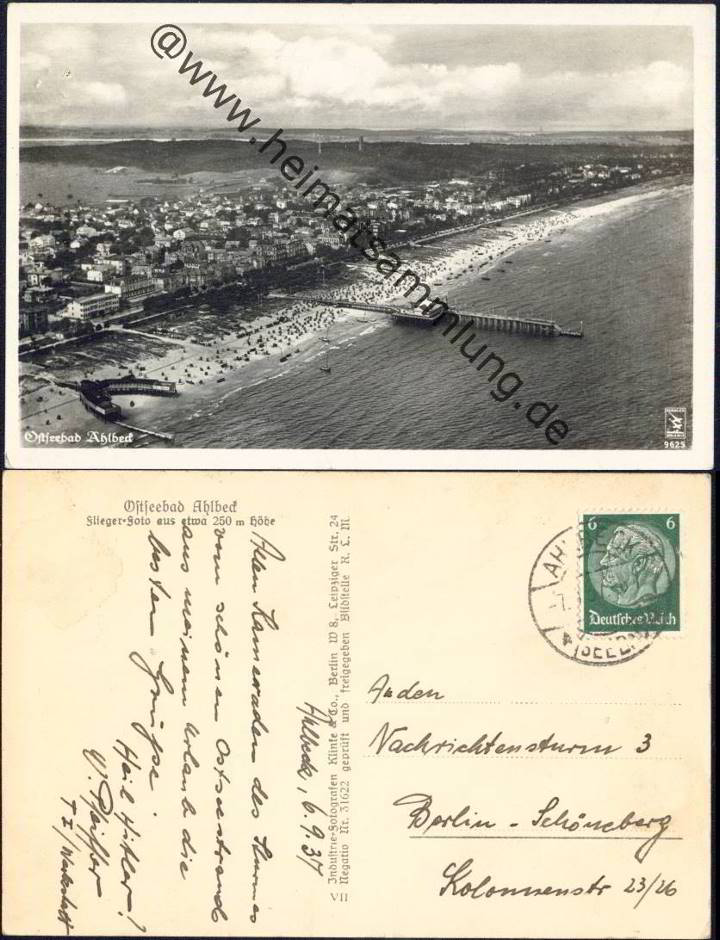 @www.heimatsammlung.de
Ostseebad Ahlbeck
9625
Ostseebad Ahlbeck
Flieger-Foto aus etwa 250 m Höhe
Ahlbeck, 6.9.37
Allen Kameraden des Sturmes
vom schönen Ostseestrand
aus meinem Urlaub die
besten Grüße.
Heil Hitler!
W. Pfeiffer
Industrie-Fotografen Klinke & Co., Berlin W 8, Leipziger Str. 24
Negativ Nr. 31622 geprüft und freigegeben Bildstelle R. L. M.
VII
6 6
Deutsches Reich
AHLBECK
(SEEB
An den
Nachrichtensturm 3
Berlin - Schöneberg
Kolonnenstr 23/26